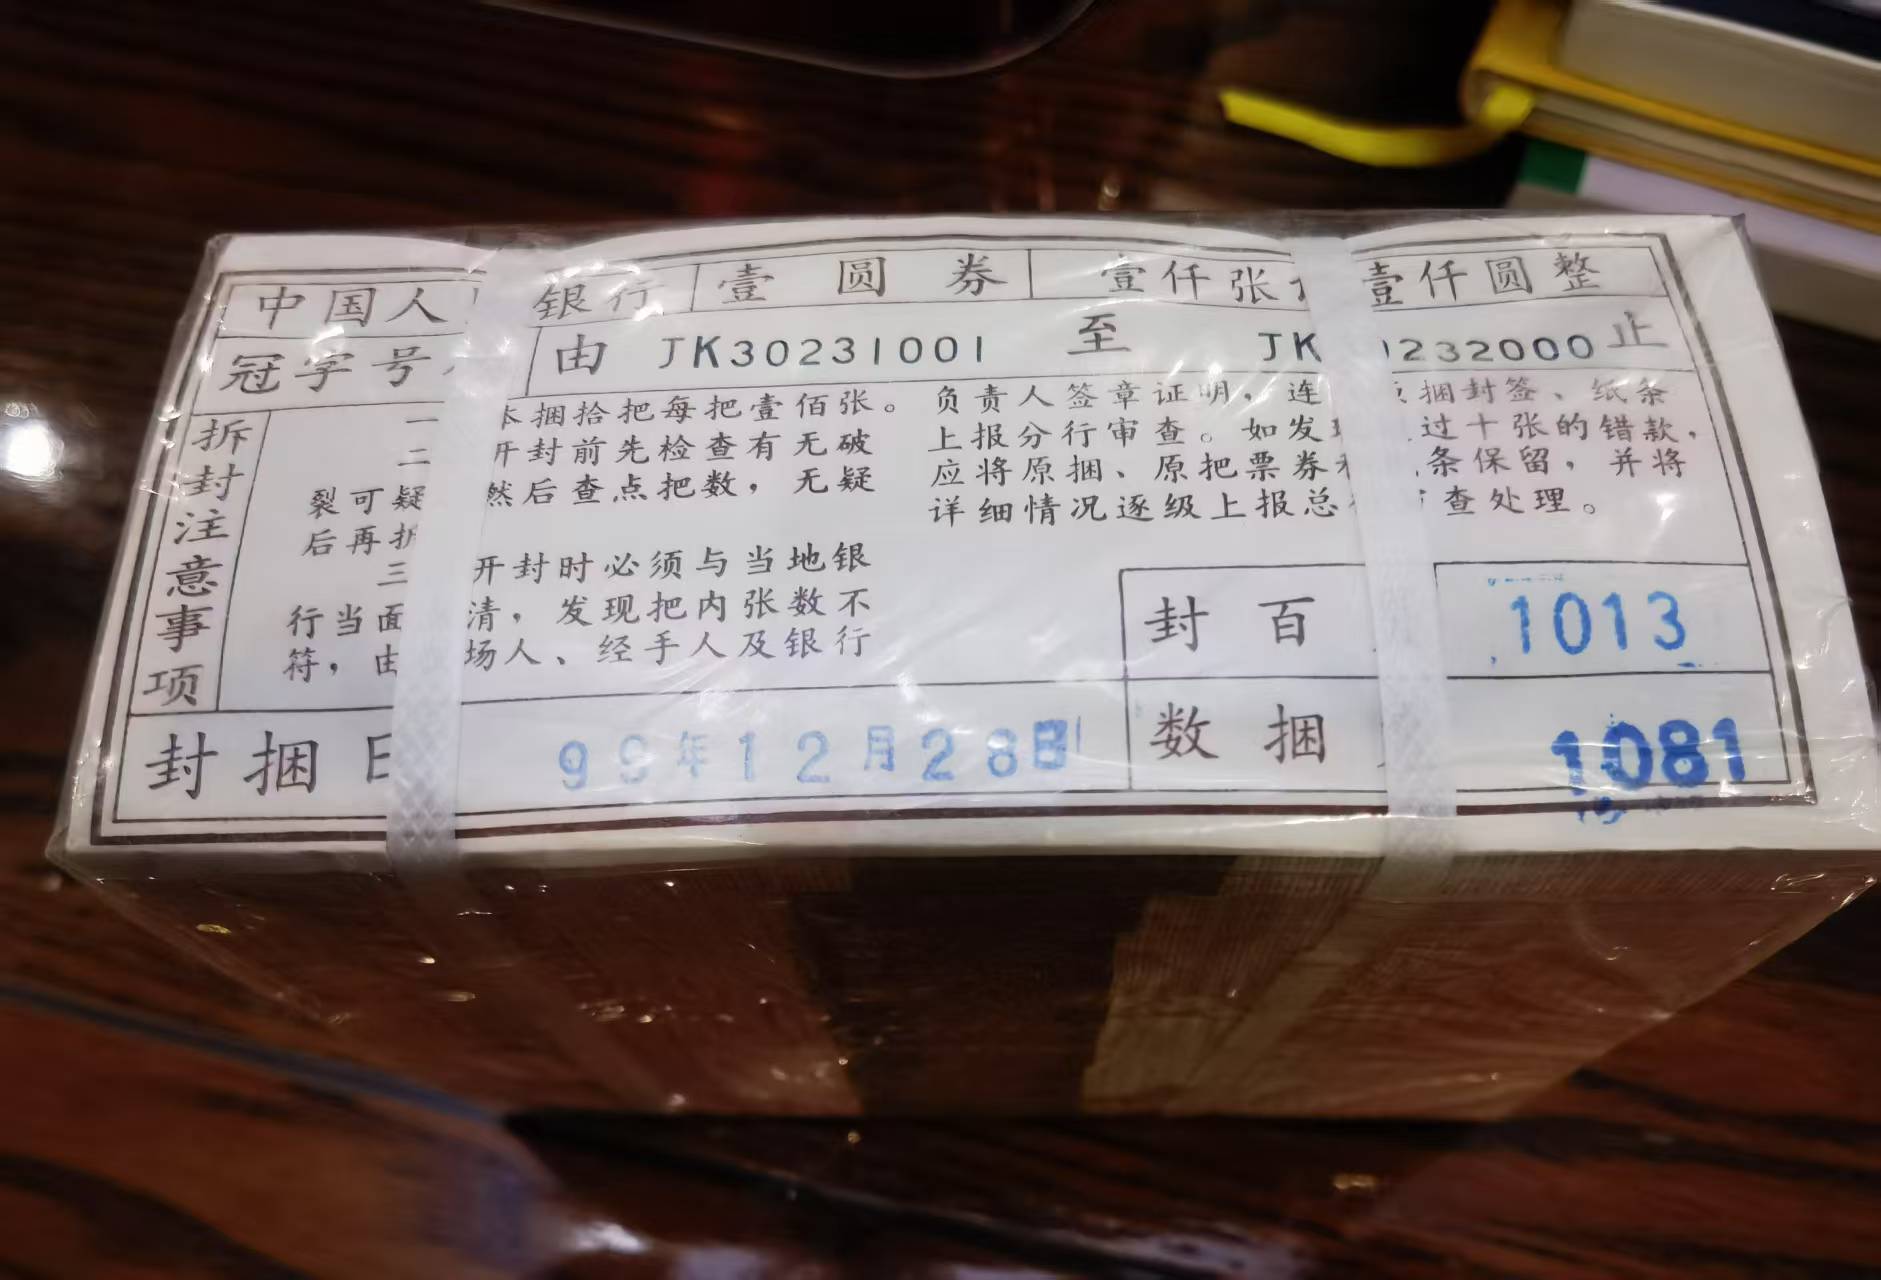 中国人 银行 壹圆券 壹仟张 壹仟圆整
冠字号 由 JK30231001 至 JK 0232000 止
拆封注意事项
一 本捆拾把每把壹佰张。
二 开封前先检查有无破
裂可疑 然后查点把数，无疑
后再拆
三 开封时必须与当地银
行当面 清，发现把内张数不
符，由 场人、经手人及银行
负责人签章证明，连 捆封签、纸条
上报分行审查。如发现 过十张的错款，
应将原捆、原把票券和 条保留，并将
详细情况逐级上报总 查处理。
封百 1013
封捆日 99年12月28日
数捆 1081